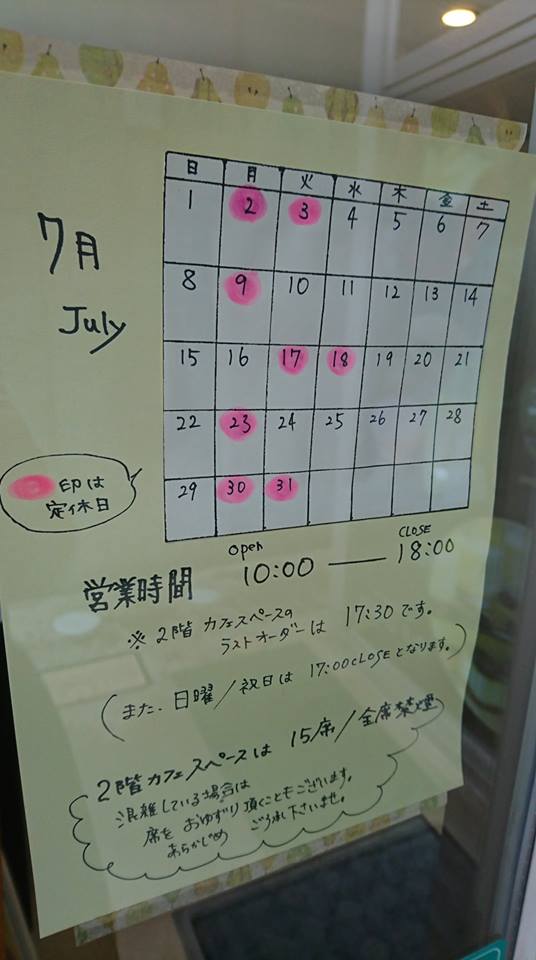 7月
July
日 月 火 水 木 金 土
1 2 3 4 5 6 7
8 9 10 11 12 13 14
15 16 17 18 19 20 21
22 23 24 25 26 27 28
29 30 31
印は
定休日
open CLOSE
営業時間 10:00 — 18:00
※2階カフェスペースの
ラストオーダーは 17:30です。
(また、日曜/祝日は 17:00CLOSEとなります。)
2階カフェスペースは 15席/全席禁煙
混雑している場合は
席をおゆずり頂くこともございます。
あらかじめ ご了承下さいませ。